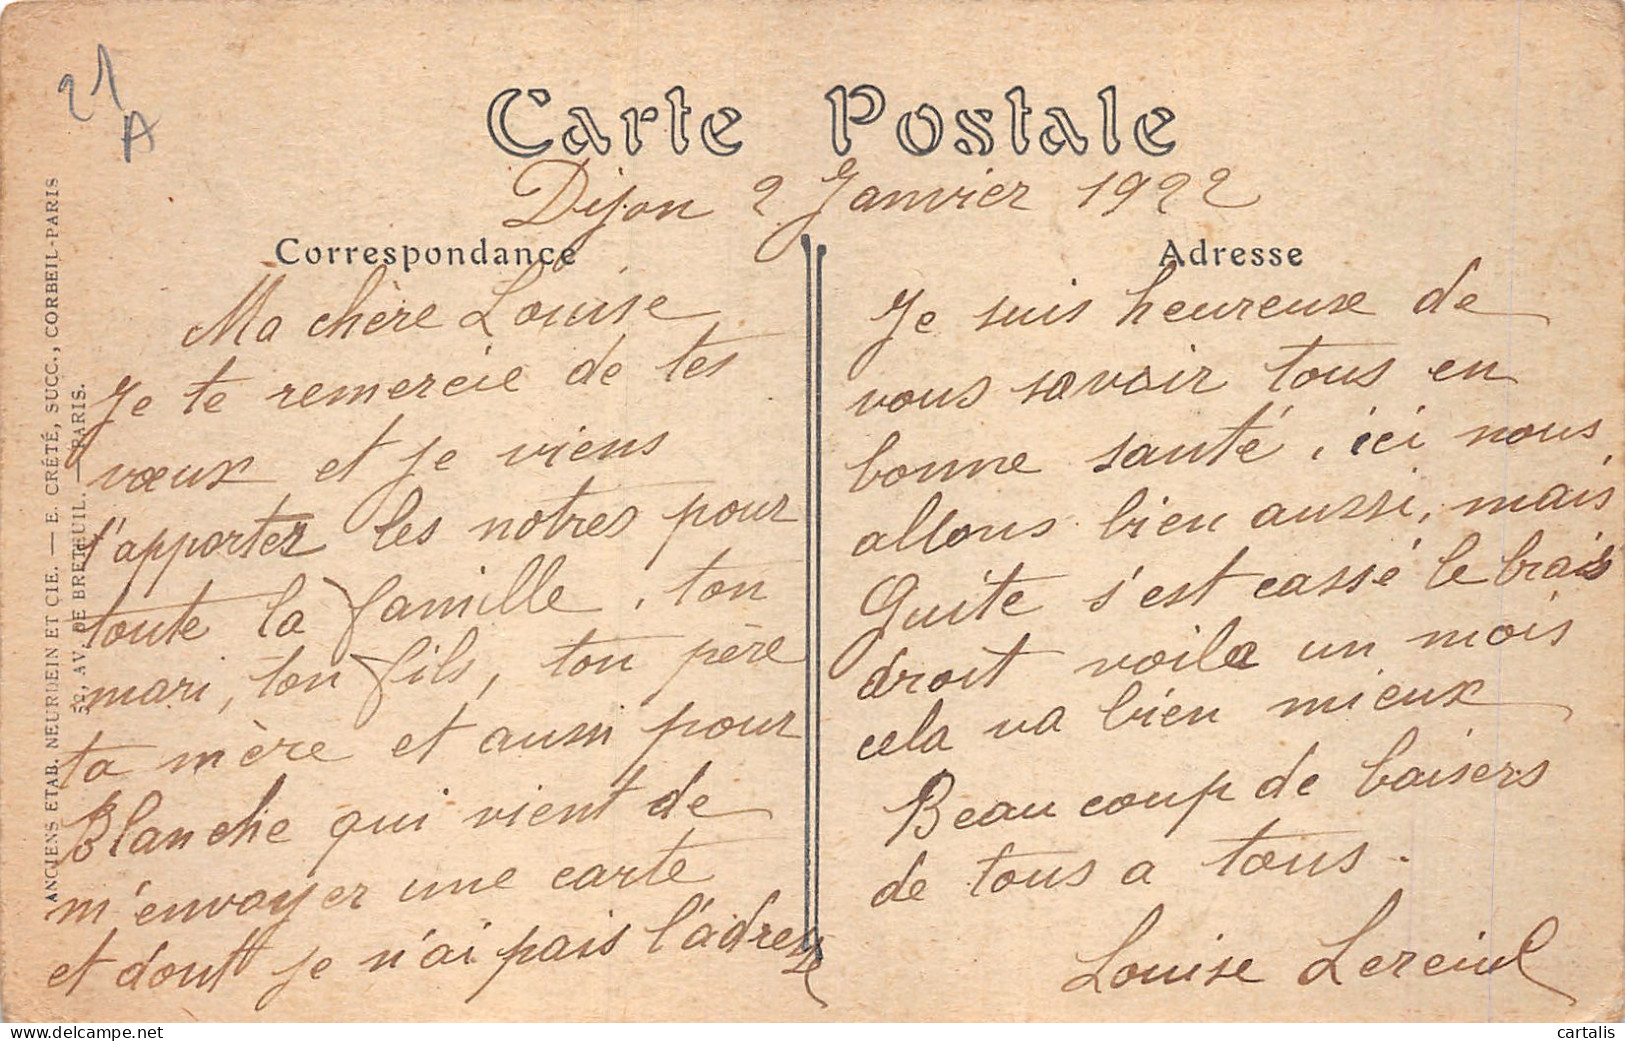 21
A
Carte Postale
Dijon 2 Janvier 1922
Correspondance
Adresse
Ma chère Louise
Je te remercie de tes
vœux et je viens
t'apporter les notres pour
toute la famille, ton
mari, ton fils, ton père
ta mère et aussi pour
Blanche qui vient de
m'envoyer une carte
et dont je n'ai pais l'adresse
Je suis heureuse de
vous savoir tous en
bonne santé, ici nous
allons bien aussi, mais
Guite s'est cassé le bras
droit voila un mois
cela va bien mieux
Beaucoup de baisers
de tous a tous.
Louise
ANCIENS ETAB. NEURDEIN ET CIE. — E. CRÉTÉ, SUCC., CORBEIL-PARIS
52, AV. DE BRETEUIL. — PARIS.
cartalis